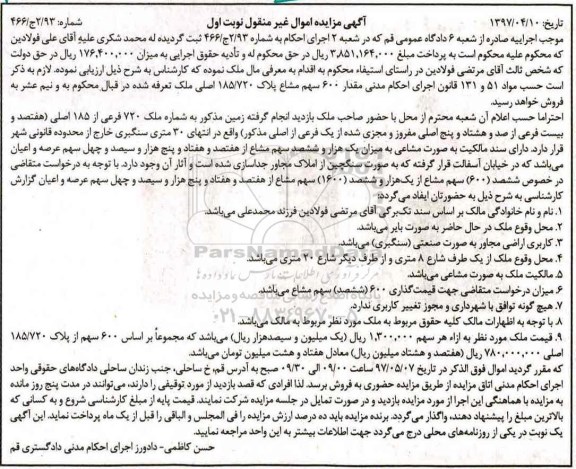 تاریخ: ۱۳۹۷/۰۴/۱۰
آگهی مزایده اموال غیر منقول نوبت اول
شماره: ۲/۹۳ج/۴۶۶
موجب اجراییه صادره از شعبه ۶ دادگاه عمومی قم که در شعبه ۲ اجرای احکام به شماره ۲/۹۳ج/۴۶۶ ثبت گردیده له محمد شکری علیه آقای علی فولادین
که محکوم علیه محکوم است به پرداخت مبلغ ۳,۸۵۱,۱۶۴,۰۰۰ ریال در حق محکوم له و تأدیه حقوق اجرایی به میزان ۱۷۶,۴۰۰,۰۰۰ ریال در حق دولت
که شخص ثالث آقای مرتضی فولادین در راستای استیفاء محکوم به اقدام به معرفی مال ملک نموده که کارشناس به شرح ذیل ارزیابی نموده. لازم به ذکر
است حسب مواد ۵۱ و ۱۳۱ قانون اجرای احکام مدنی مقدار ۶۰۰ سهم مشاع پلاک ۱۸۵/۷۲۰ اصلی ملک تعرفه شده در قبال محکوم به و نیم عشر به
فروش خواهد رسید.
احتراما حسب اعلام آن شعبه محترم از محل با حضور صاحب ملک بازدید انجام گرفته زمین مذکور به شماره ملک ۷۲۰ فرعی از ۱۸۵ اصلی (هفتصد و
بیست فرعی از صد و هشتاد و پنج اصلی مفروز و مجزی شده از یک فرعی از اصلی مذکور) واقع در انتهای ۳۰ متری سنگبری خارج از محدوده قانونی شهر
قرار دارد. دارای سند مالکیت به صورت مشاعی به میزان یک هزار و ششصد سهم مشاع از هفتصد و هفتاد و پنج هزار و سیصد و چهل سهم عرصه و اعیان
می‌باشد که در خیابان آسفالت قرار گرفته که به صورت سنگچین از املاک مجاور جداسازی شده است و آثار آن وجود دارد. با توجه به درخواست متقاضی
در خصوص ششصد (۶۰۰) سهم مشاع از یک‌هزار و ششصد (۱۶۰۰) سهم مشاع از هفتصد و هفتاد و پنج هزار و سیصد و چهل سهم عرصه و اعیان گزارش
کارشناسی به شرح ذیل به حضورتان ایفاد می‌گردد:
۱. نام و نام خانوادگی مالک بر اساس سند تک‌برگی آقای مرتضی فولادین فرزند محمدعلی می‌باشد.
۲. محل وقوع ملک در حال حاضر به صورت بایر می‌باشد.
۳. کاربری اراضی مجاور به صورت صنعتی (سنگبری) می‌باشد.
۴. محل وقوع ملک از یک طرف شارع ۸ متری و از طرف دیگر شارع ۲۰ متری می‌باشد.
۵. مالکیت ملک به صورت مشاعی می‌باشد.
۶. میزان درخواست متقاضی جهت قیمت‌گذاری ۶۰۰ (ششصد) سهم مشاع می‌باشد.
۷. هیچ گونه توافق با شهرداری و مجوز تغییر کاربری ندارد.
۸. با توجه به اظهارات مالک کلیه حقوق مربوط به ملک مورد نظر مربوط به مالک می‌باشد.
۹. قیمت ملک مورد نظر به ازاء هر سهم ۱,۳۰۰,۰۰۰ ریال (یک میلیون و سیصدهزار ریال) می‌باشد که مجموعاً بر اساس ۶۰۰ سهم از پلاک ۱۸۵/۷۲۰
اصلی ۷۸۰,۰۰۰,۰۰۰ ریال (هفتصد و هشتاد میلیون ریال) معادل هفتاد و هشت میلیون تومان می‌باشد.
که مقرر گردید اموال فوق الذکر در تاریخ ۹۷/۰۵/۰۷ ساعت ۰۹/۰۰ الی ۰۹/۳۰ صبح به آدرس قم، خ ساحلی، جنب زندان ساحلی دادگاه‌های حقوقی واحد
اجرای احکام مدنی اتاق مزایده از طریق مزایده حضوری به فروش برسد. لذا افرادی که قصد بازدید از مورد توقیفی را دارند، می‌توانند در مدت پنج روز مانده
به مزایده با هماهنگی این اجرا از مورد مزایده بازدید و در صورت تمایل در جلسه مزایده شرکت نمایند. قیمت پایه از مبلغ کارشناسی شروع و به کسانی که
بالاترین مبلغ را پیشنهاد دهند، واگذار می‌گردد. برنده مزایده باید ده درصد ارزش مزایده را فی المجلس و الباقی را قبل از یک ماه پرداخت نماید. این آگهی
یک نوبت در یکی از روزنامه‌های محلی درج می‌گردد جهت اطلاعات بیشتر به این واحد مراجعه نمایید.
حسن کاظمی- دادورز اجرای احکام مدنی دادگستری قم
ParsNamadData
۰۲۱-۸۸۳۴۹۶۷۰-۵